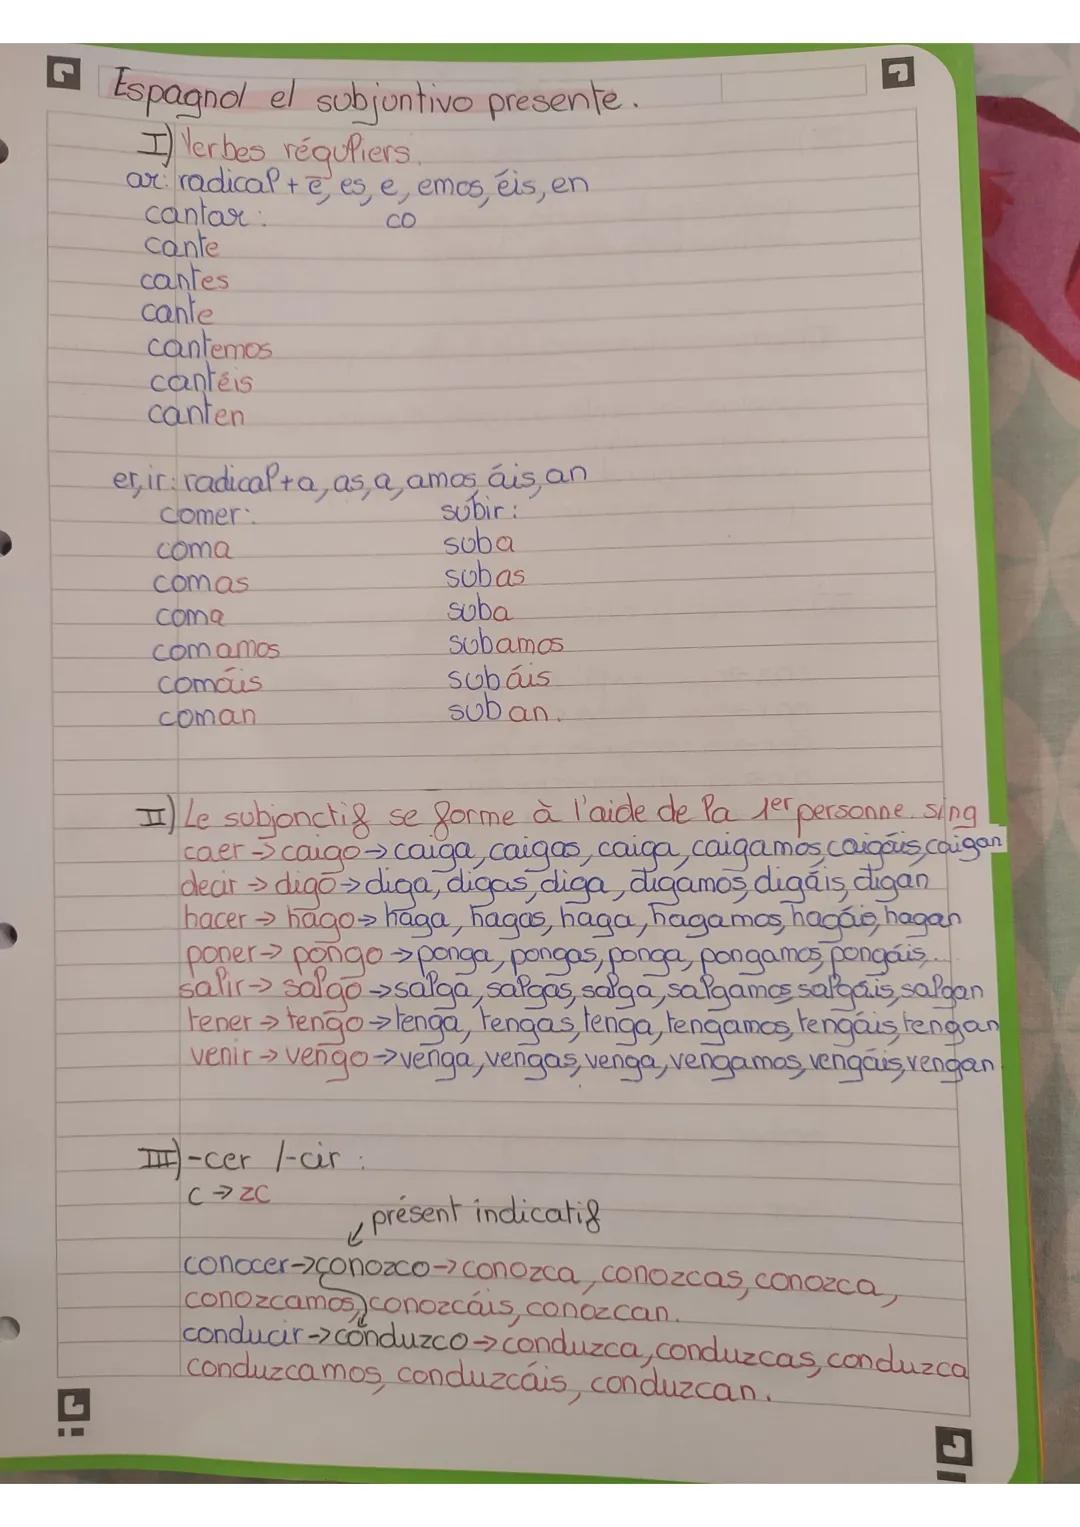 Espagnol el subjuntivo presente.
I) Verbes réguliers.
ar: radical + e, es, e, emos, éis, en
cantar: co
cante
cantes
cante
cantemos
cantéis
canten
er, ir: radical + a, as, a, amos, áis, an
comer: subir:
coma suba
comas subas
coma suba
comamos subamos
comáis subáis
coman suban.
II) Le subjonctif se forme à l'aide de la 1er personne. sing
caer → caigo → caiga, caigas, caiga, caigamos, caigáis, caigan
decir → digo → diga, digas, diga, digamos, digáis, digan
hacer → hago → haga, hagas, haga, hagamos, hagáis, hagan
poner → pongo → ponga, pongas, ponga, pongamos, pongáis...
salir → salgo → salga, salgas, salga, salgamos, salgáis, salgan
tener → tengo → tenga, tengas, tenga, tengamos, tengáis, tengan
venir → vengo → venga, vengas, venga, vengamos, vengáis, vengan
III) -cer /-cir :
c → zc
présent indicatif
conocer → conozco → conozca, conozcas, conozca,
conozcamos, conozcáis, conozcan.
conducir → conduzco → conduzca, conduzcas, conduzca
conduzcamos, conduzcáis, conduzcan.